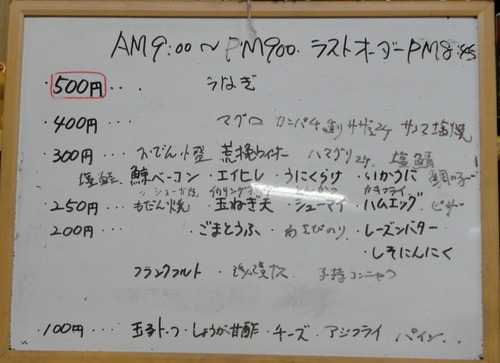 AM9:00〜PM900. ラストオーダーPM8:45
・500円・・・うなぎ
・400円・・・マグロ カンパチ サザエ2ケ サンマ塩焼
・300円・・・おでん 荒挽ウィンナー ハマグリ2ケ 塩鯖
塩鮭 鯨ベーコン・エイヒレ・うにくらげ・いかうに
シューマイ カキフライ
・250円・・・もだん焼・玉ねぎ天・シューマイ・ハムエッグ・ピザ
・200円・・・ごまとうふ・わさびのり・レーズンバター
・しそにんにく
フランクフルト・子持コンニャク
・100円・・・玉子トーフ・しょうが甘酢・チーズ・アジフライ パイン...